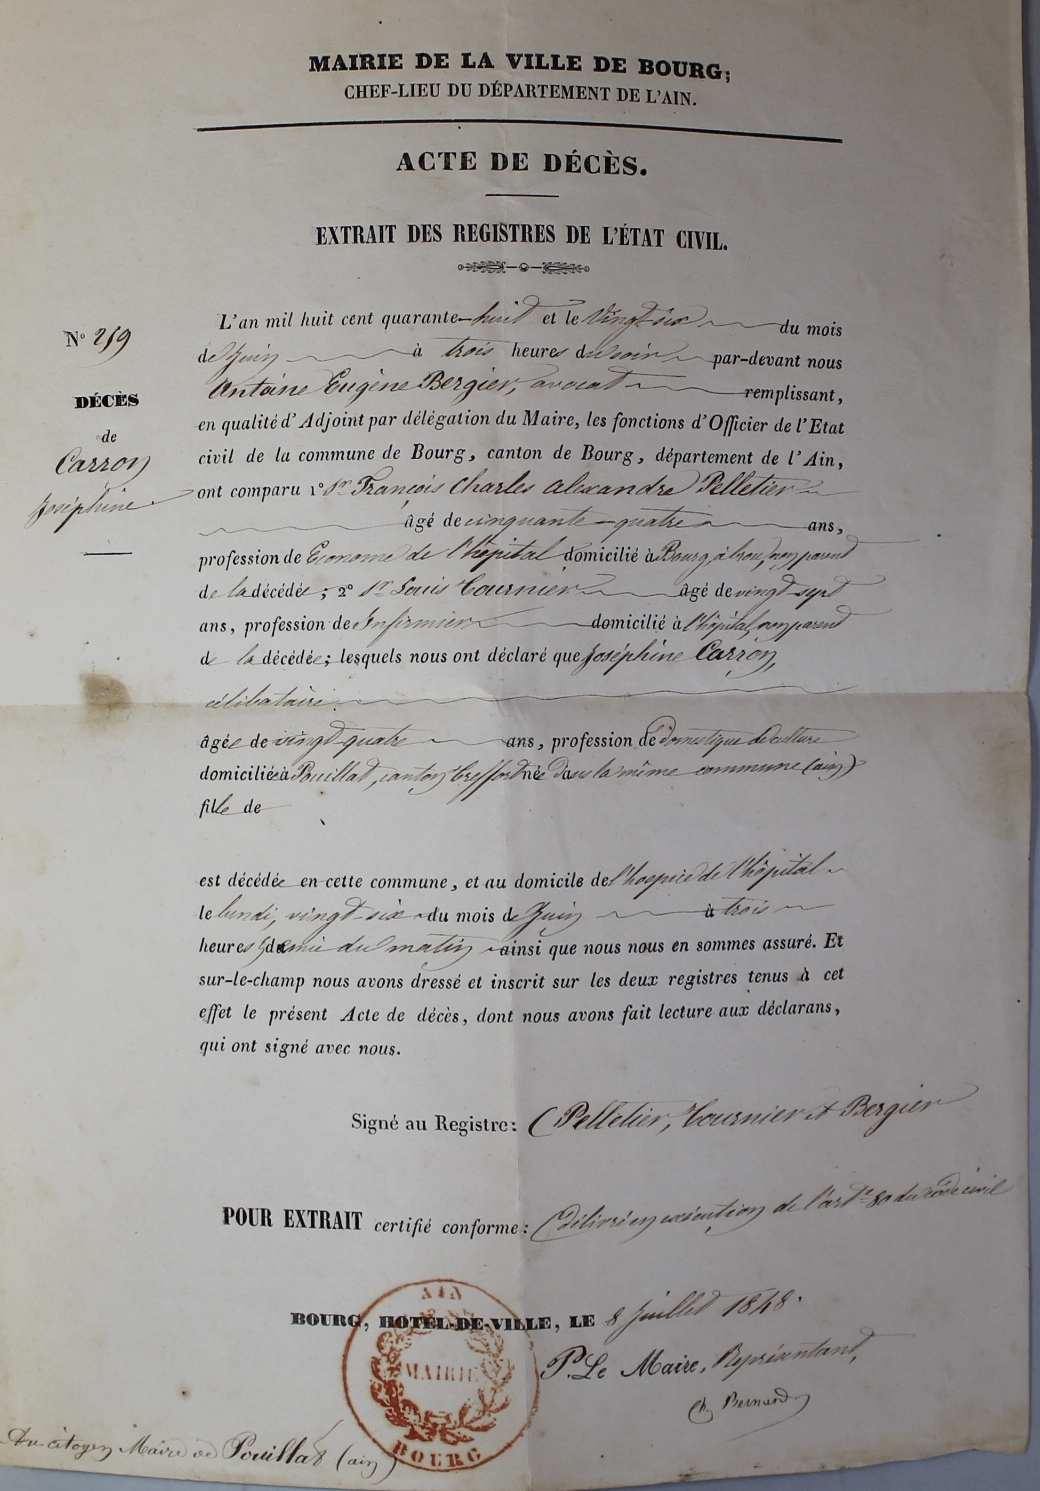 MAIRIE DE LA VILLE DE BOURG;
CHEF-LIEU DU DÉPARTEMENT DE L'AIN.
ACTE DE DÉCÈS.
EXTRAIT DES REGISTRES DE L'ÉTAT CIVIL.
N° 259
DÉCÈS
de
Carron
Joséphine
L'an mil huit cent quarante-huit et le Vingt-six du mois
de Juin à trois heures du soir par-devant nous
Antoine Eugène Bergier, avocat remplissant,
en qualité d'Adjoint par délégation du Maire, les fonctions d'Officier de l'Etat
civil de la commune de Bourg, canton de Bourg, département de l'Ain,
ont comparu 1° Sr François Charles Alexandre Pelletier
âgé de cinquante-quatre ans,
profession de Econome de l'hôpital domicilié à Bourg, à brou, non parent
de la décédée; 2° Sr Louis Tournier âgé de vingt-sept
ans, profession de Infirmier domicilié à l'hôpital, non parent
de la décédée; lesquels nous ont déclaré que Joséphine Carron,
célibataire
âgée de vingt-quatre ans, profession de domestique de culture
domiciliée à Pouillat, canton Treffort née dans la même commune (ain)
fille de
est décédée en cette commune, et au domicile de l'hospice de l'hôpital
le lundi, vingt-six du mois de Juin à trois
heures & demie du matin ainsi que nous nous en sommes assuré. Et
sur-le-champ nous avons dressé et inscrit sur les deux registres tenus à cet
effet le présent Acte de décès, dont nous avons fait lecture aux déclarans,
qui ont signé avec nous.
Signé au Registre: (Pelletier, Tournier et Bergier
POUR EXTRAIT certifié conforme: (délivré en exécution de l'art.e 80 du code civil
BOURG, HOTEL-DE-VILLE, LE 8 Juillet 1848.
P. Le Maire, Représentant,
Ch. Bernard
AIN
MAIRIE
BOURG
Au citoyen Maire de Pouillat (ain)